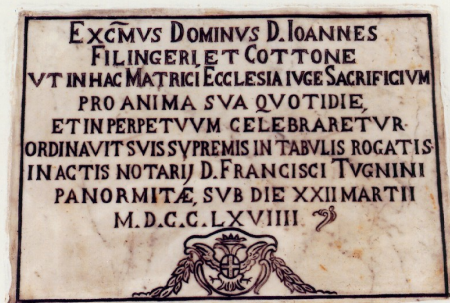 EXCM̃VS DOMINVS D. IOANNES
FILINGERI, ET COTTONE
VT IN HAC MATRICI ECCLESIA IVGE SACRIFICIVM
PRO ANIMA SVA QVOTIDIE,
ET IN PERPETVVM CELEBRARETVR
ORDINAVIT SVIS SVPREMIS IN TABVLIS ROGATIS
IN ACTIS NOTARIJ D. FRANCISCI TVGNINI
PANORMITÆ, SVB DIE XXII MARTII
M.D.C.C.LXVIIII.